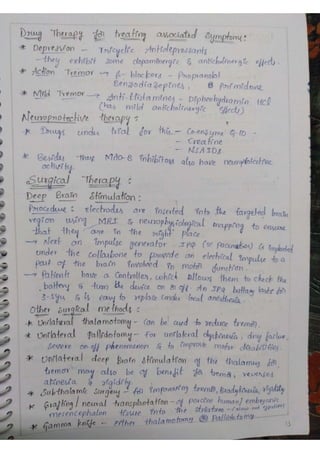 Drug Therapy for treating associated symptoms:
* Depression - Tricyclic Antidepressants
- they exhibit some dopaminergic & anticholinergic effects.
* Action Tremor → β-blockers - Propranolol
Benzodiazepines, & Primidone
* Mild Tremor → Anti-Histamines - Diphenhydramin HCl
(has mild anticholinergic effects)
Neuroprotective therapy:
* Drugs under trial for this - Co-enzyme Q-10 -
- Creatine
- NSAIDS
* Besides these MAO-B Inhibitors also have neuroprotective
activity.
Surgical Therapy:
Deep Brain Stimulation:
Procedure: electrodes are inserted into the targeted brain
region using MRI & neurophysiological mapping to ensure
that they are in the right place.
→ Next an impulse generator IPG (or pacemaker) is implanted
under the collarbone to provide an electrical impulse to a
part of the brain involved in motor function.
→ Patients have a controller, which allows them to check the
battery & turn the device on or off. An IPG battery lasts for
3-5yrs & is easy to replace under local anesthesia.
Other surgical methods:
* Unilateral thalamotomy - can be used to reduce tremor.
* Unilateral Pallidotomy - For unilateral dyskinesia, drug failure,
severe on-off phenomenon & to improve motor disabilities.
* Unilateral deep brain stimulation of the thalamus for
tremor may also be of benefit for tremor, reverses
akinesia & rigidity.
* Subthalamic surgery - for improving tremor, Bradykinesia, rigidity
* Grafting / neural transplantation - of porcine human/ embryonic
mesencephalon tissue into the striatum -
* Gamma knife - either thalamotomy or Pallidotomy
13